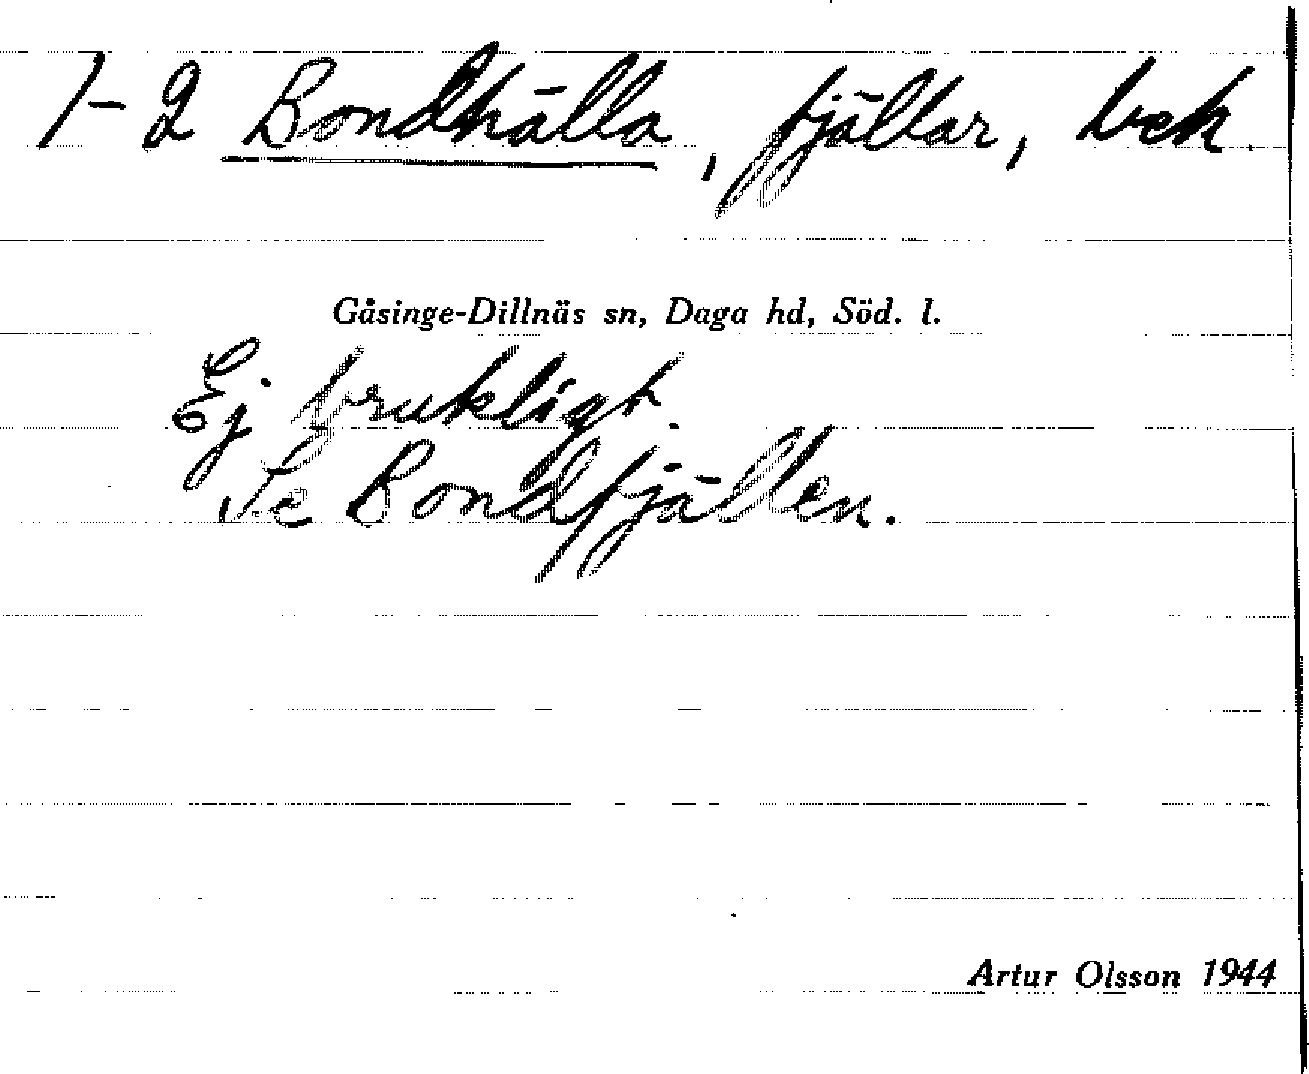 1-2 Bondhälla, fjällar, bek.
Gåsinge-Dillnäs sn, Daga hd, Söd. l.
Ej brukligt.
Se Bondfjällen.
Artur Olsson 1944